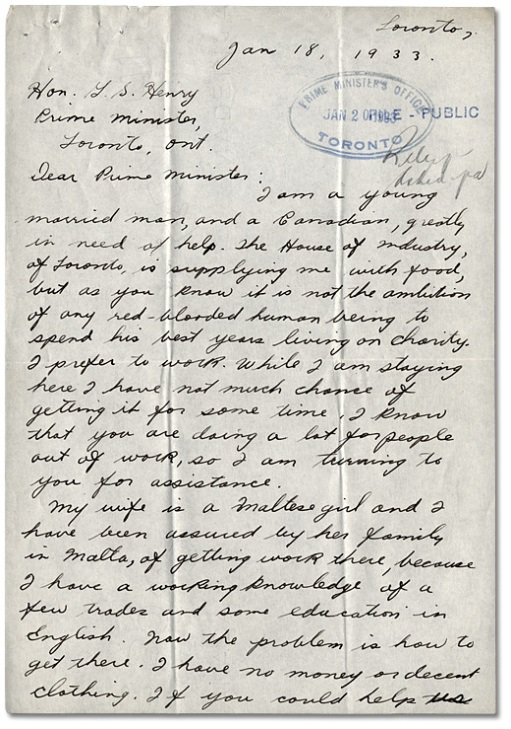 Toronto,
Jan 18, 1933.
Hon. G. S. Henry
Prime Minister,
Toronto, Ont.
PRIME MINISTER'S OFFICE
JAN 20 1933
TORONTO
FILE - PUBLIC
Dear Prime Minister:
I am a young
married man, and a Canadian, greatly
in need of help. The House of Industry,
of Toronto, is supplying me with food,
but as you know it is not the ambition
of any red-blooded human being to
spend his best years living on charity.
I prefer to work. While I am staying
here I have not much chance of
getting it for some time. I know
that you are doing a lot for people
out of work, so I am turning to
you for assistance.
My wife is a Maltese girl and I
have been assured by her family
in Malta, of getting work there, because
I have a working knowledge of a
few trades and some education in
English. Now the problem is how to
get there. I have no money or decent
clothing. If you could help us